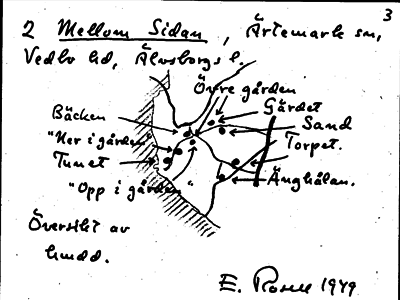 3
2 Mellom Sidan, Ärtemark sn,
Vedbo hd, Älvsborgs l.
Övre gården
Bäcken
Gärdet
"Ner i gården"
Sand
Torpet.
Tunet
"Opp i gården"
Änghålan.
Översikt av
hudd.
E. Rosell 1949